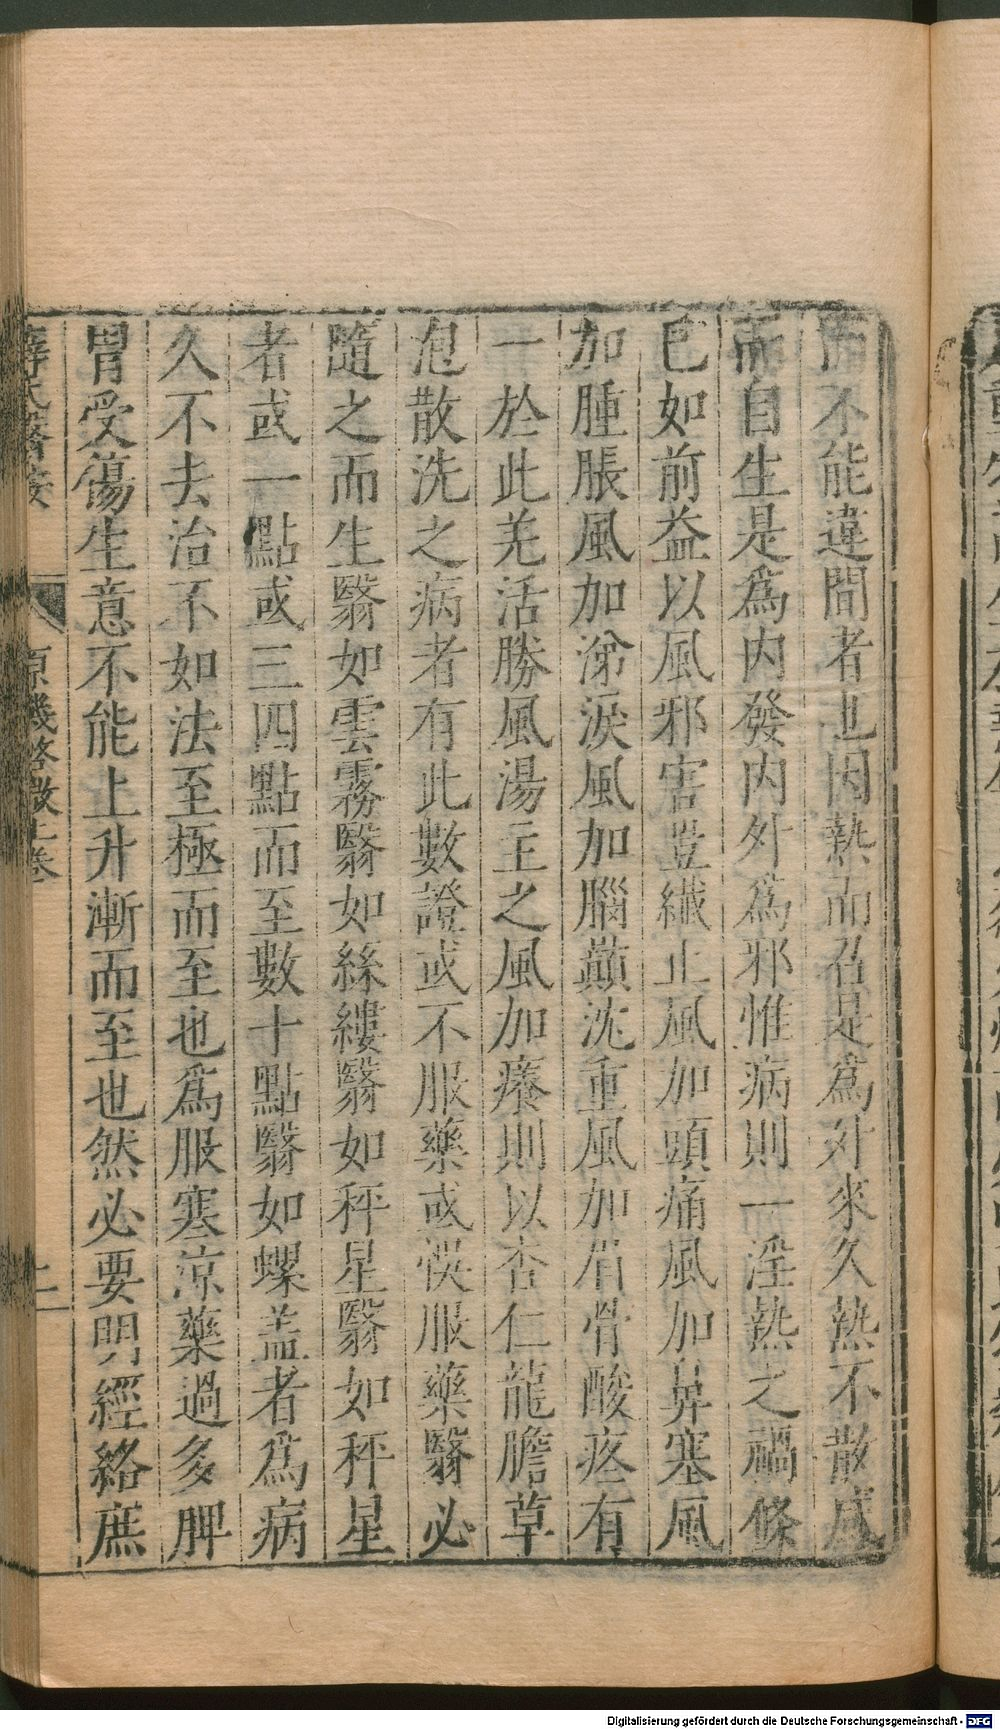 而不能違間者也因熱而召是爲外來久熱不散感
而自生是爲内發内外爲邪惟病則一淫熱之禍條
已如前益以風邪害豈纎止風加頭痛風加鼻塞風
加腫脹風加涕淚風加腦巔沈重風加眉骨酸疼有
一於此羌活勝風湯主之風加癢則以杏仁龍膽草
泡散洗之病者有此數證或不服藥或悞服藥翳必
隨之而生翳如雲霧翳如絲縷翳如秤星翳如秤星
者或一點或三四點而至數十點翳如螺盖者爲病
久不去治不如法至極而至也爲服寒涼藥過多脾
胃受傷生意不能上升漸而至也然必要明經絡庶
薛氏醫按 原機啓微上卷 上二
Digitalisierung gefördert durch die Deutsche Forschungsgemeinschaft - DFG